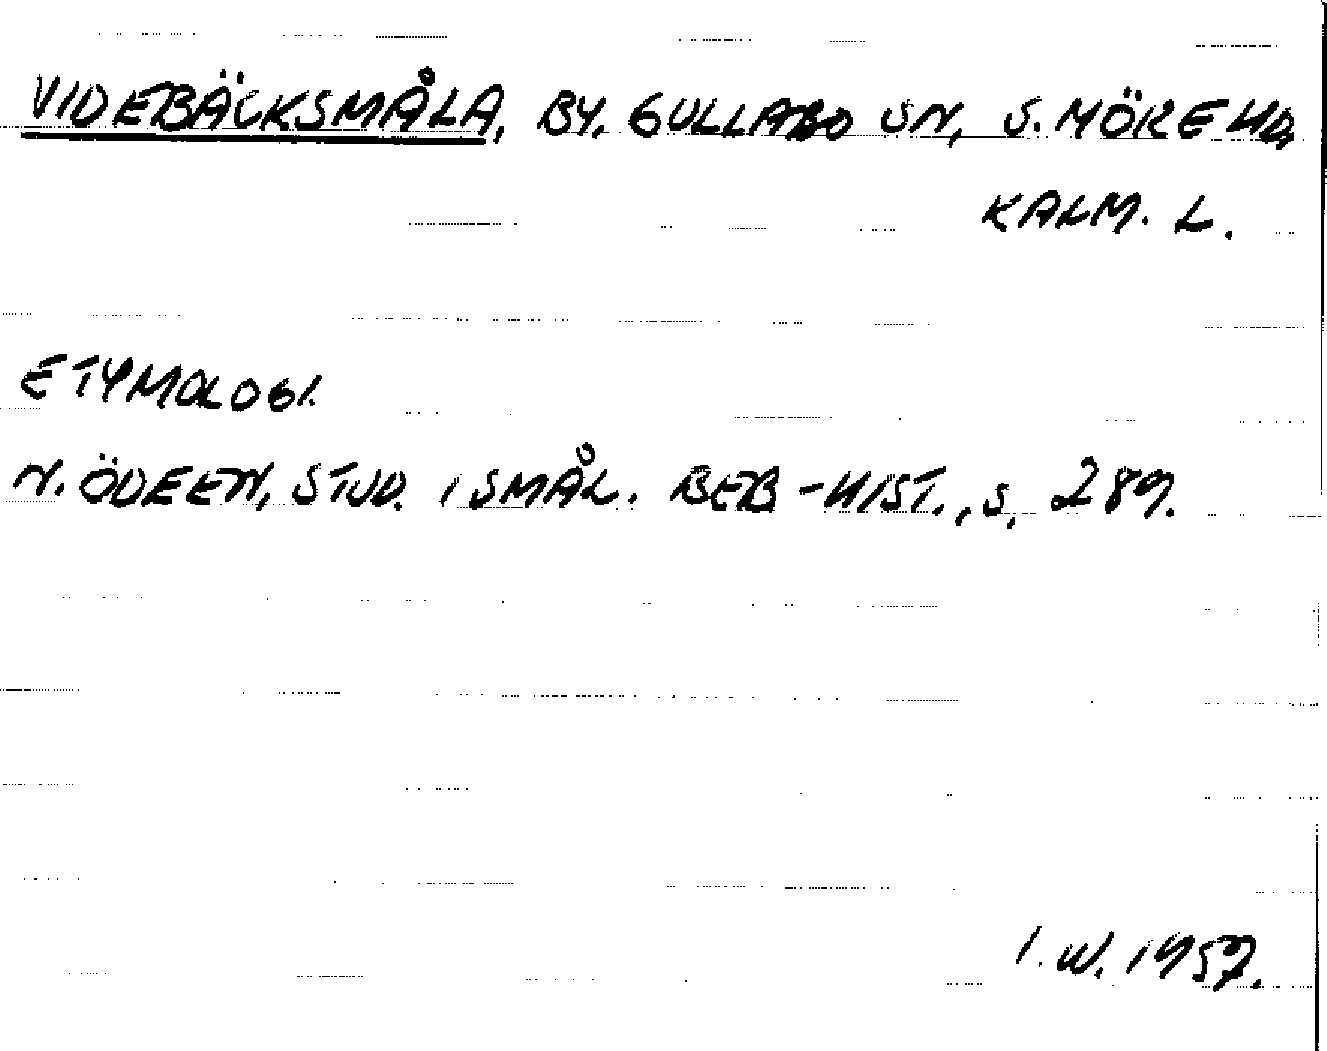 VIDEBÄCKSMÅLA, BY, GULLABO SN, S. MÖRE HD,
KALM. L.
ETYMOLOGI.
N. ÖDEEN, STUD. I SMÅL. BEB-HIST., S. 289.
I. W. 1957.